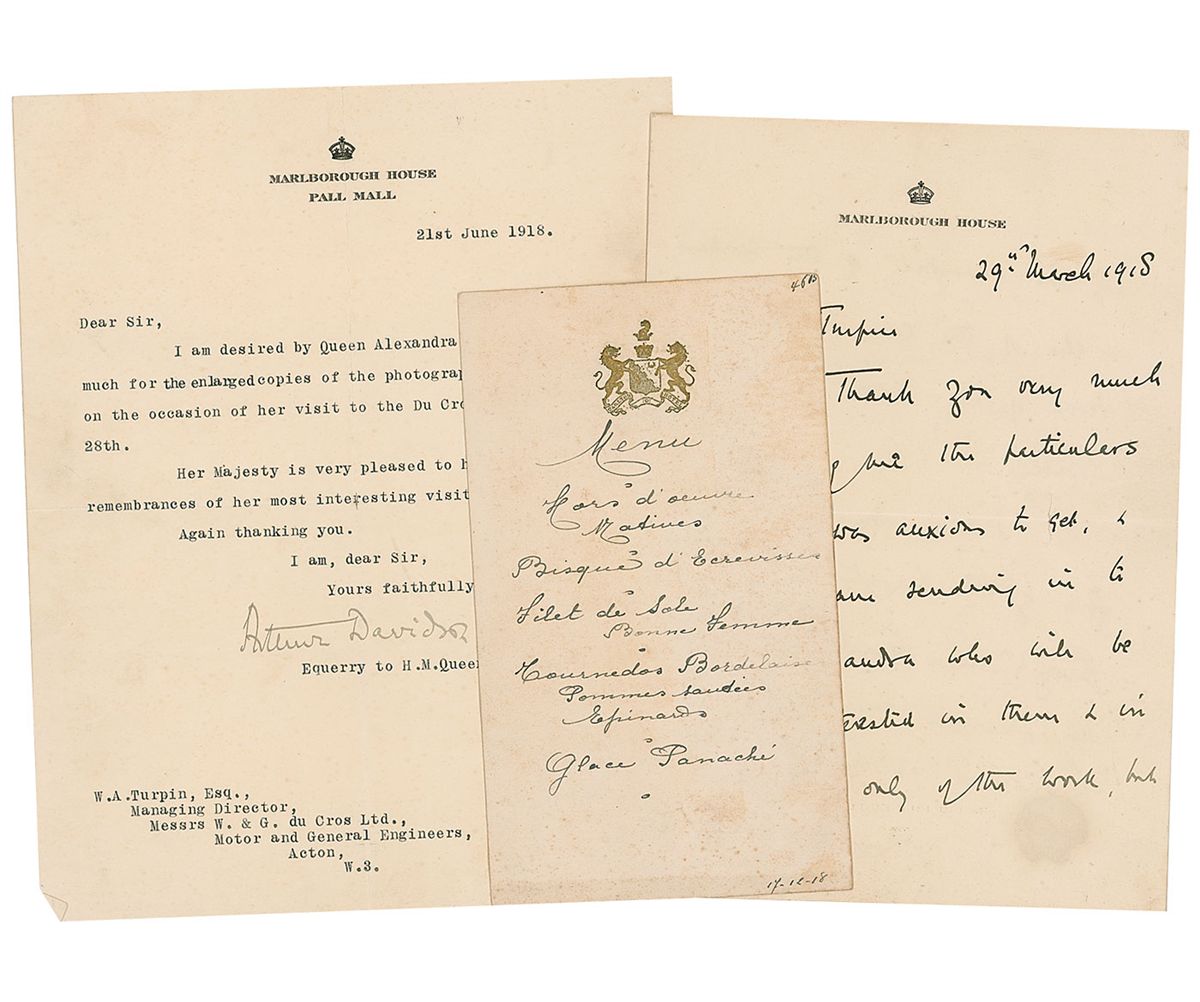 MARLBOROUGH HOUSE
PALL MALL
21st June 1918.
Dear Sir,
I am desired by Queen Alexandra
much for the enlarged copies of the photograp
on the occasion of her visit to the Du Cro
28th.
Her Majesty is very pleased to h
remembrances of her most interesting visit
Again thanking you.
I am, dear Sir,
Yours faithfully
Arthur Davidson
Equerry to H.M.Queen
W.A.Turpin, Esq.,
Managing Director,
Messrs W. & G. du Cros Ltd.,
Motor and General Engineers,
Acton,
W.3.
Menu
Hors d'oeuvre
Natives
Bisque d'Ecrevisses
Filet de Sole
Bonne Femme
Tournedos Bordelaise
Pommes sautées
Epinards
Glace Panaché
17-12-18
MARLBOROUGH HOUSE
29th March 1918
Turpin
Thank you very much
me the particulars
was anxious to get, &
am sending in to
andra who will be
erested in them & in
only of the work, but